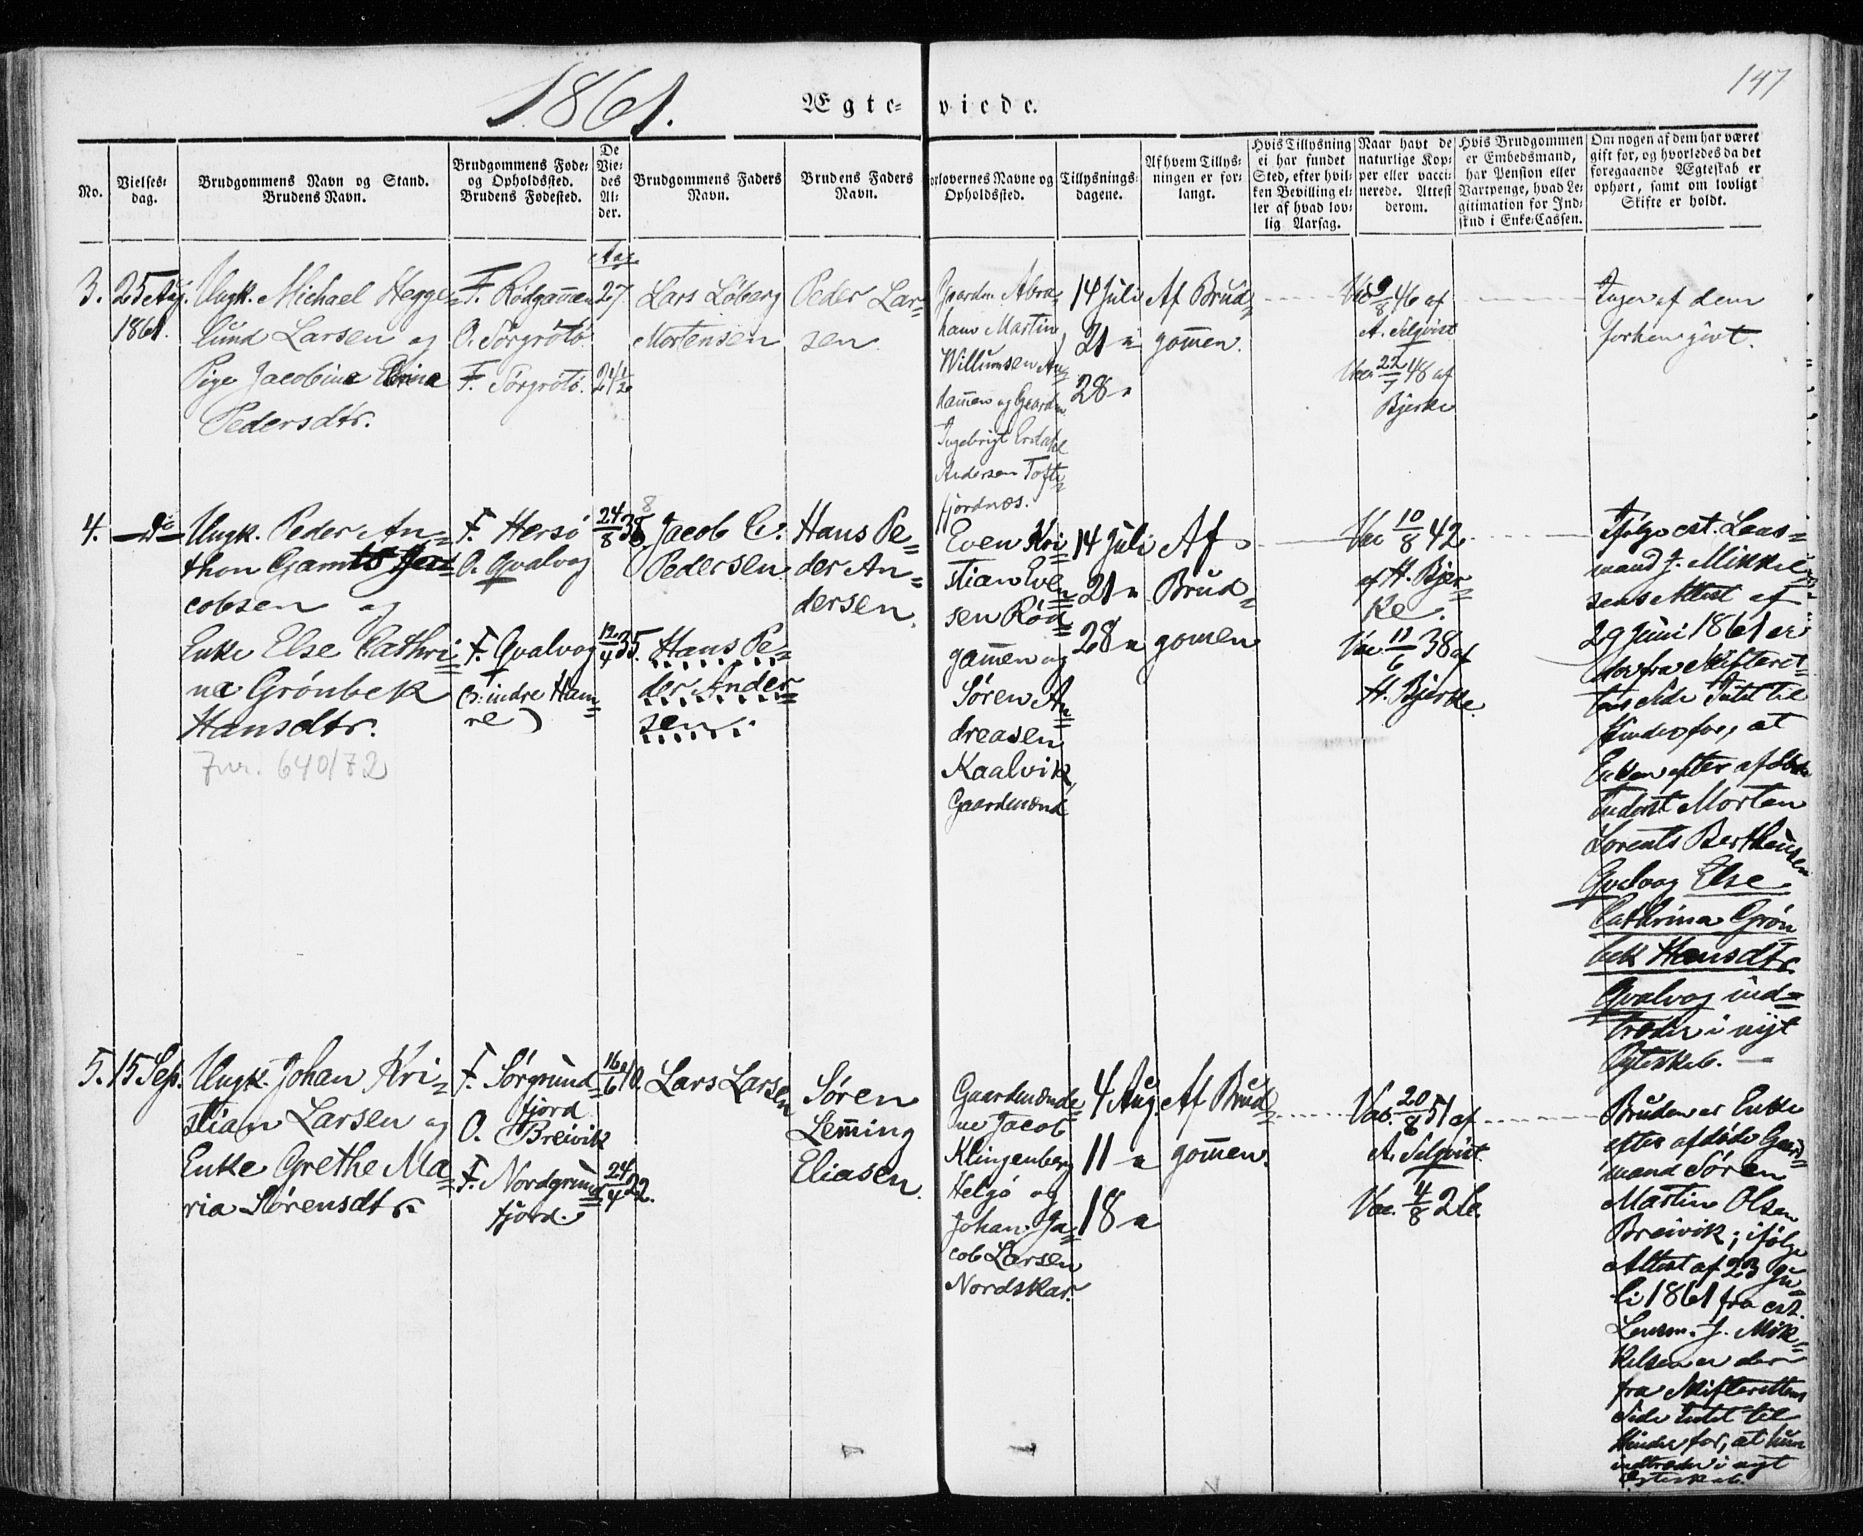 147
1861.
Ægte-viede.
No.
Vielses-
dag.
Brudgommens Navn og Stand.
Brudens Navn.
Brudgommens Føde-
og Opholdssted.
Brudens Fødested.
De
Vie-
des
Al-
der.
Brudgommens Faders
Navn.
Brudens Faders
Navn.
orlovernes Navne og
Opholdssted.
Tillysnings-
dagene.
Af hvem Tillys-
ningen er for-
langt.
Hvis Tillysning
ei har fundet
Sted, efter hvil-
ken Bevilling el-
ler af hvad lov-
lig Aarsag.
Naar havt de
naturlige Kop-
per eller vacci-
nerede. Attest
derom.
Hvis Brudgommen
er Embedsmand,
har Pension eller
Vartpenge, hvad Le-
gitimation for Ind-
skud i Enke-Cassen.
Om nogen af dem har været
gift før, og hvorledes da det
foregaaende Ægteskab er
ophørt, samt om lovligt
Skifte er holdt.
3.
25 Aug.
1861.
Ungk. Michael Hegge-
lund Larsen og
Pige Jacobine
Pedersdtr.
F. Rødgammen
O. Sørgrøtø.
F. Sørgrøtø.
Aar
27
21 1/2
Lars Løberg
Mortensen
Peder Lar-
sen.
Gaardm. Abra-
ham Martin
Willumsen
hamen og Gaardm.
Ingebrigt Erdahl
Andersen Toft-
fjordnæs.
14 Juli
21 "
28 "
Af Brud-
gommen.
Vac 9/8 46 af
A. Selqvist
Vac. 22/7 48 af
Bjerke
Ingen af dem
forhen givt.
4.
Do
Ungk. Peder An-
thon Gamst Ja-
cobsen og
Enke Else Cathri-
na Grønbek
Hansdtr.
Jnr. 640/72
F. Hersø
O. Qvalvog
F. Qvalvog
(O. indre Ham-
re)
24/8 38
8
12/4 35.
Jacob C.
Pedersen
Hans Pe-
der Ander-
sen.
Hans Pe-
der An-
dersen.
Even Kri-
stian Even-
sen Rød-
gammen og
Søren An-
dreasen
Kaalvik,
Gaardmænd
14 Juli
21 "
28 "
Af
Brud-
gomen
Vac 10/8 42
af H. Bjer-
ke.
Vac. 11/6 38 af
H. Bjerke.
Ifølge cst. Lens-
mand J. Mikkel-
sens Attest af
29 Juni 1861 er
der fra Skifteret-
tens Side Intet til
Hinder for, at
Enken efter afdøde
Inderst Morten
Lorents Bertheusen
Qvalvog Else
Cathrina Grøn-
bek Hansdtr.
Qvalvog ind-
træder i nyt
Ægteskab. —
5.
15 Sep.
Ungk. Johan Kri-
stian Larsen og
Enke Grethe Ma-
ria Sørensdtr.
F. Sørgrund-
fjord
O. Breivik
F. Nordgrund-
fjord.
16/6 40.
24/4 22.
Lars Larsen
Søren
Lemming
Eliasen.
Gaardmænde-
ne Jacob
Klingenberg
Helgø og
Johan Ja-
cob Larsen
Nordskar.
4 Aug.
11 "
18 "
Af Brud-
gommen.
Vac. 20/8 51 af
A. Selqvist.
Vac. 4/8 26.
Bruden er Enke
efter afdøde Gaard-
mand Søren
Martin Olsen
Breivik; ifølge
Attest af 23 Ju-
li 1861 fra cst.
Lensm. J. Mik-
kelsen er der
fra Skifterettens
Side Intet til
Hinder for, at hun
indtræder i nyt
Ægteskab.